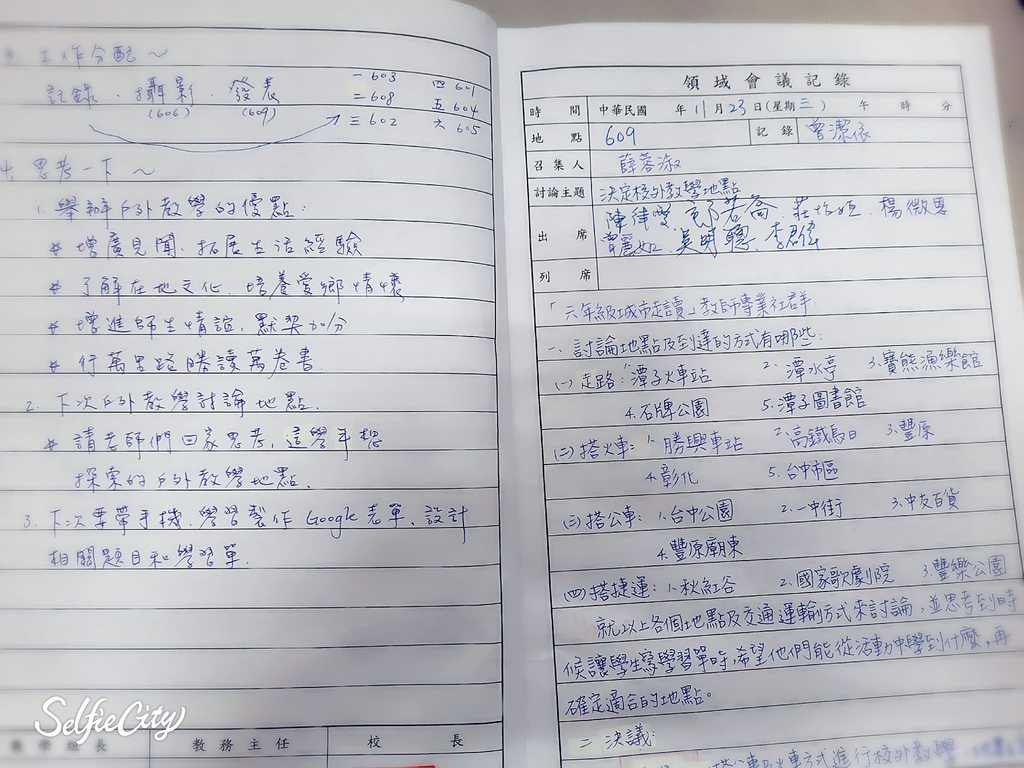 工作分配～
記錄．攝影．發表
(606) (609)
一 603 四 601
二 608 五 604
三 602 六 605
4. 思考一下～
1. 舉辦戶外教學的優點：
* 增廣見聞．拓展生活經驗
* 了解在地文化．培養愛鄉情懷
* 增進師生情誼．默契加分
* 行萬里路勝讀萬卷書．
2. 下次戶外教學討論地點．
* 請老師們回家思考，這學年想
探索的戶外教學地點．
3. 下次要帶手機．學習製作Google表單、設計
相關題目和學習單．
教學組長 教務主任 校長
SelfieCity
領域會議記錄
時間 中華民國 年11月23日(星期三) 午 時 分
地點 609 記錄 曾潔依
召集人 薛蓉淑
討論主題 決定校外教學地點
出席
列席
「六年級城市走讀」教師專業社群
一、討論地點及到達的方式有哪些：
(一)走路：1.潭子火車站 2.潭水亭 3.寶熊漁樂館
4.石牌公園 5.潭子圖書館
(二)搭火車：1.勝興車站 2.高鐵烏日 3.豐原
4.彰化 5.台中市區
(三)搭公車：1.台中公園 2.一中街 3.中友百貨
4.豐原廟東
(四)搭捷運：1.秋紅谷 2.國家歌劇院 3.豐樂公園
就以上各個地點及交通運輸方式來討論，並思考到時
候讓學生寫學習單時，希望他們能從活動中學到什麼，再
確定適合的地點。
二、決議：
搭公車及火車方式進行校外教學